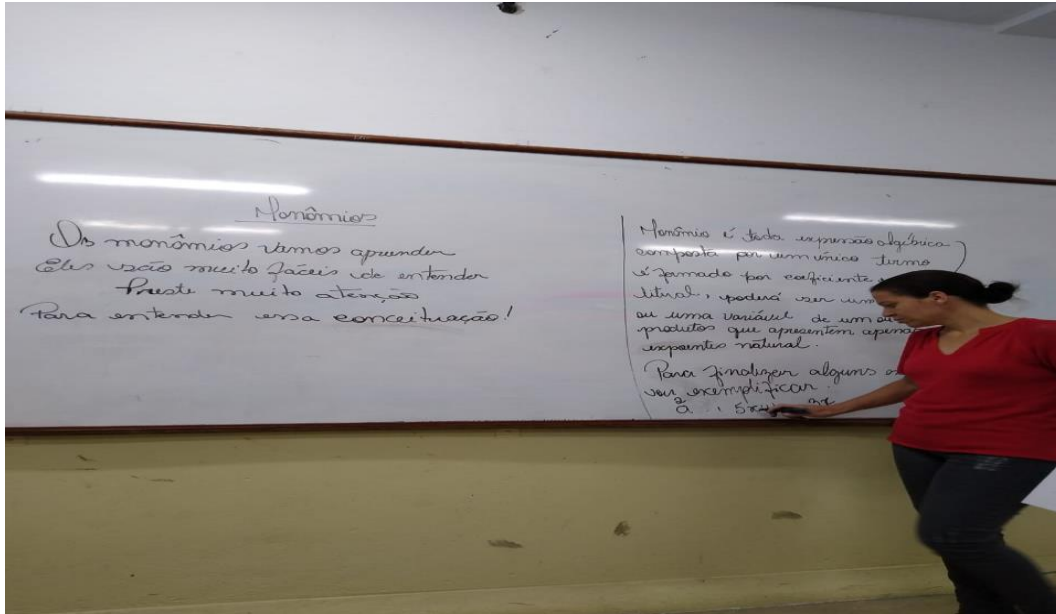 Monômios
Os monômios vamos aprender
Eles são muito fáceis de entender
Preste muito atenção
Para entender essa conceituação!
Monômio é toda expressão algébrica
composta por um único termo
é formado por coeficiente
literal, poderá ser um
ou uma variável de um ou
produtos que apresentem apenas
expoentes natural.
Para finalizar alguns
vou exemplificar.